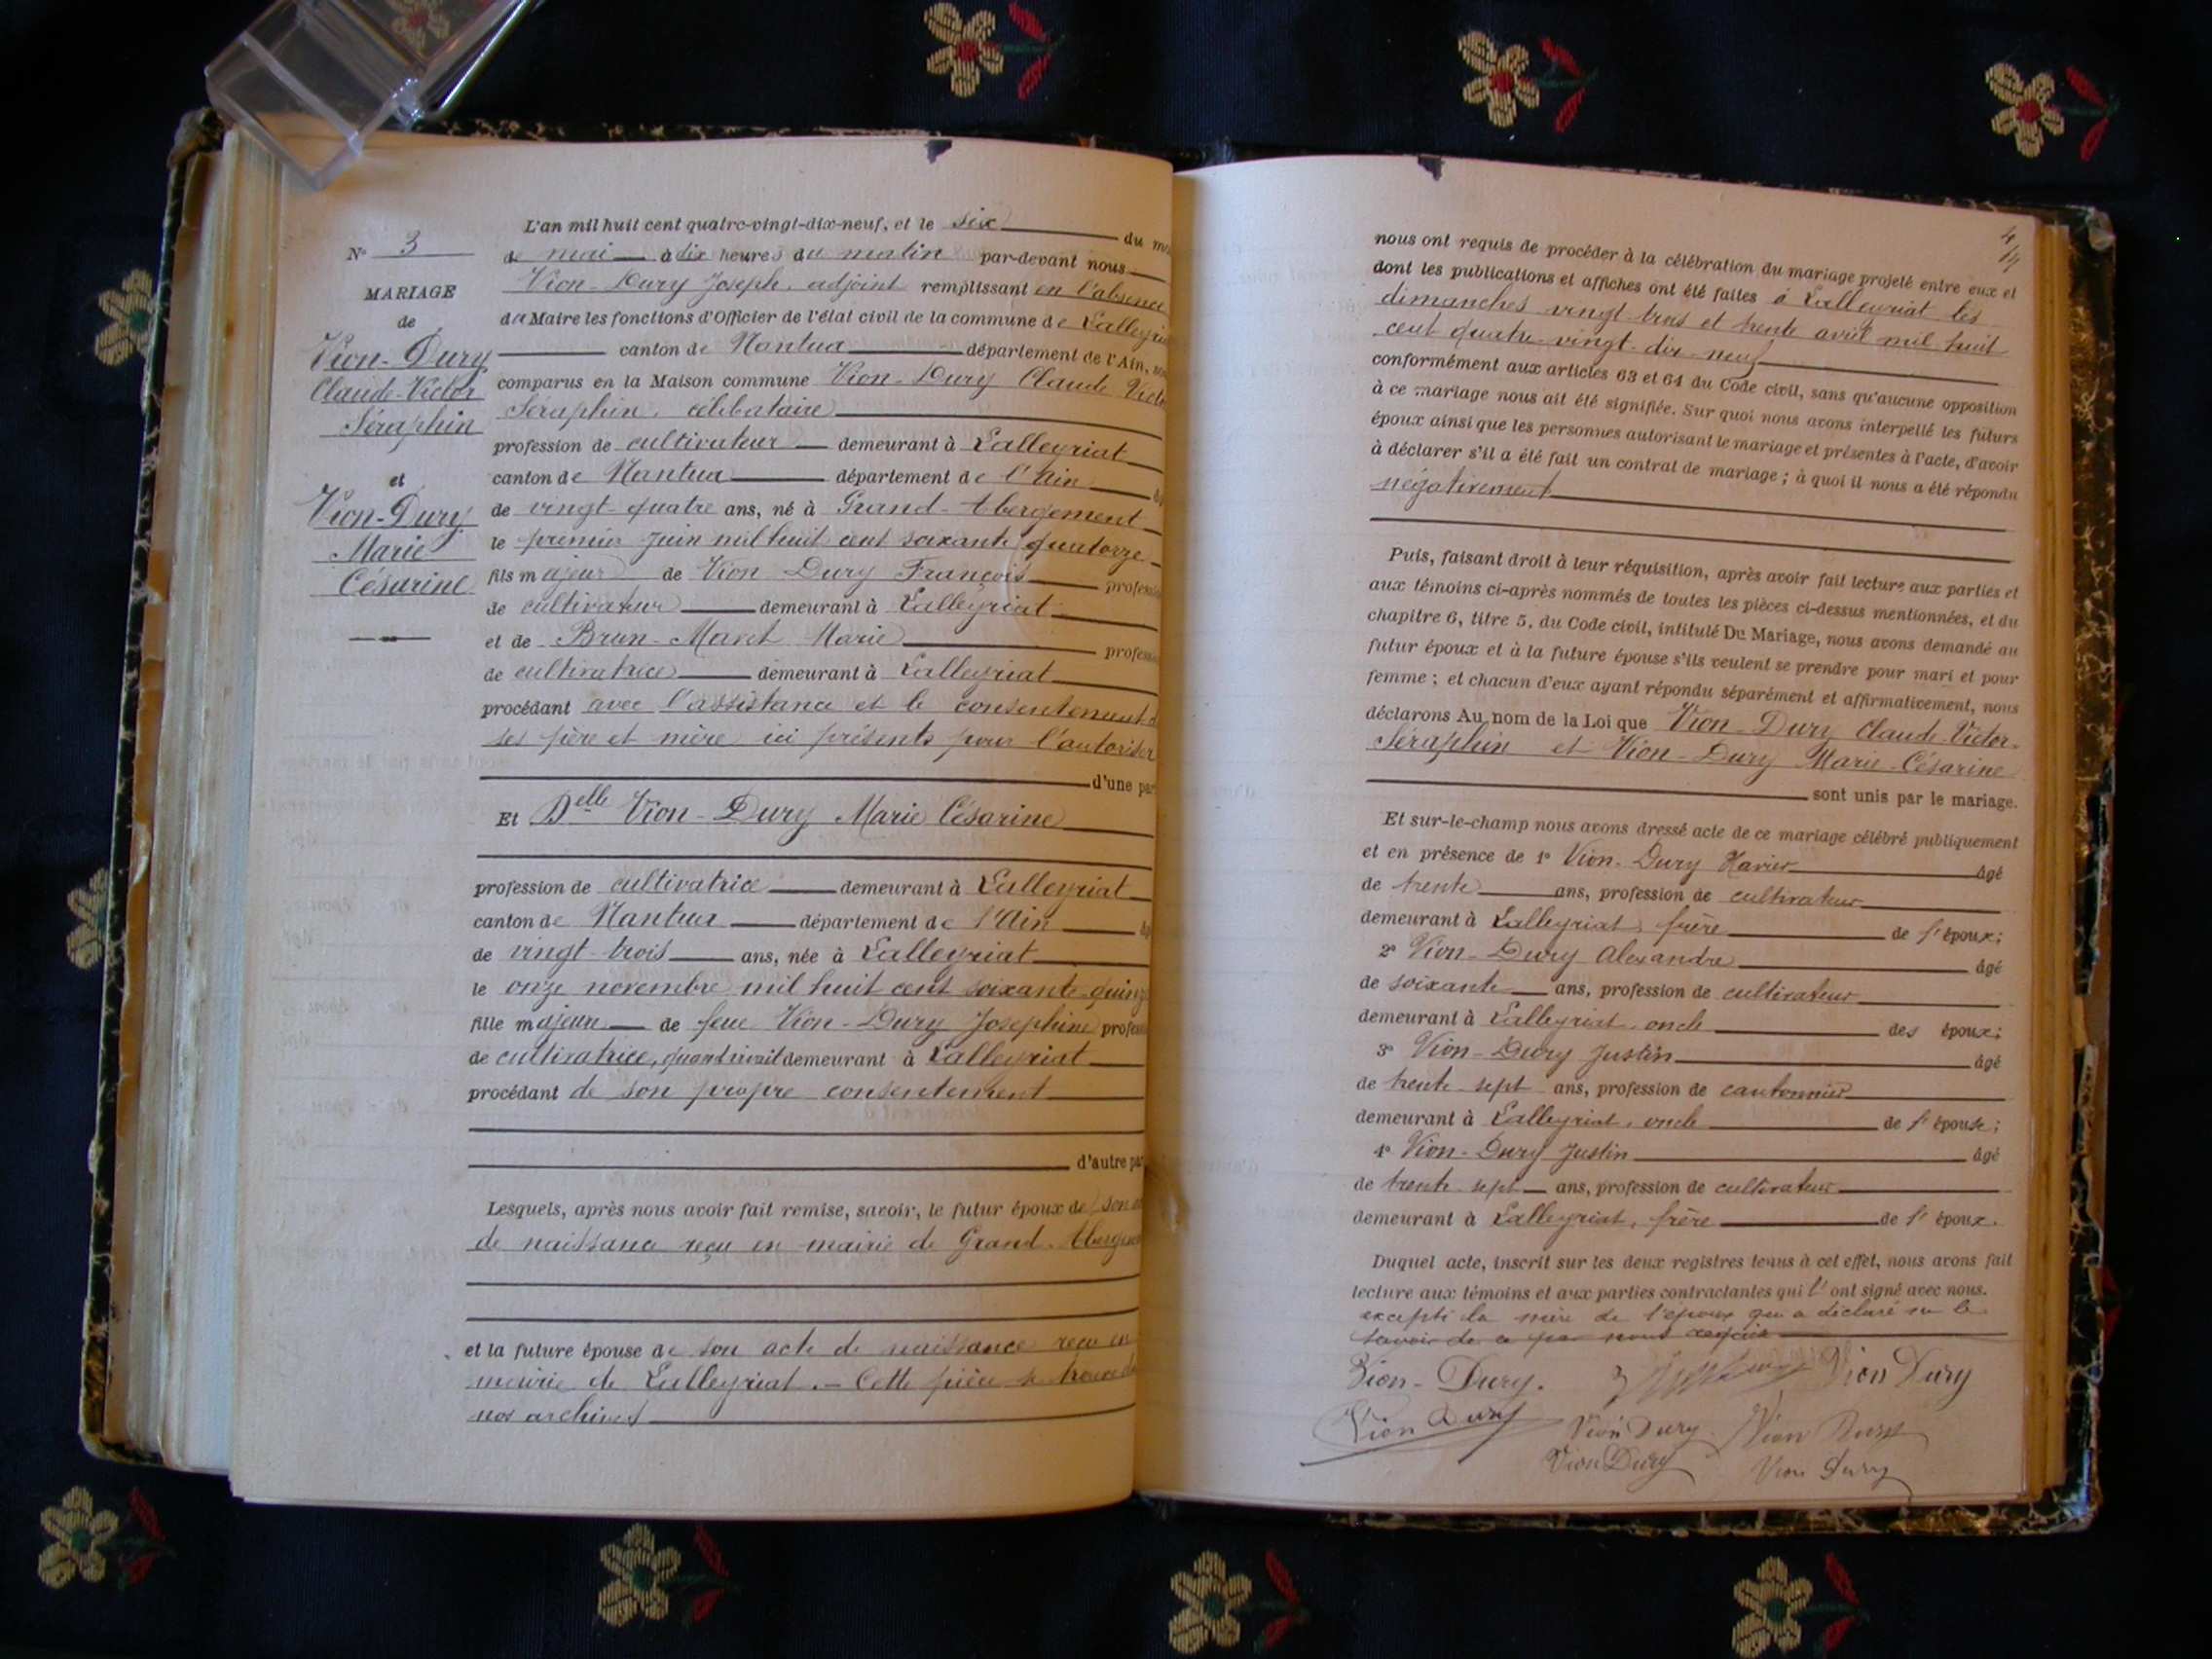 N° 3
MARIAGE
de
Vion-Dury
Claude-Victor
Séraphin
et
Vion-Dury
Marie
Césarine
L'an mil huit cent quatre-vingt-dix-neuf, et le six du
de mai à dix heures du matin par-devant nous
Vion-Dury Joseph, adjoint remplissant en l'absence
du Maire les fonctions d'Officier de l'état civil de la commune de
canton de Nantua département de l'Ain,
comparus en la Maison commune Vion-Dury Claude
Séraphin, célibataire
profession de cultivateur demeurant à Lalleyriat
canton de Nantua département de l'Ain
de vingt-quatre ans, né à Grand-Abergement
le premier juin mil huit cent soixante quatorze
fils majeur de Vion-Dury François
de cultivateur demeurant à Lalleyriat
et de Brun-Maret Marie
de cultivatrice demeurant à Lalleyriat
procédant avec l'assistance et le consentement
ses père et mère ici présents pour l'autoriser
d'une
Et Delle Vion-Dury Marie Césarine
profession de cultivatrice demeurant à Lalleyriat
canton de Nantua département de l'Ain
de vingt-trois ans, née à Lalleyriat
le onze novembre mil huit cent soixante-quinze
fille majeure de feue Vion-Dury Josephine
de cultivatrice, quand vivait demeurant à Lalleyriat
procédant de son propre consentement
d'autre
Lesquels, après nous avoir fait remise, savoir, le futur époux de son
de naissance reçu en mairie de Grand-
et la future épouse de son acte de naissance reçu en
mairie de Lalleyriat. — Cette pièce se trouve
nos archives
4
nous ont requis de procéder à la célébration du mariage projeté entre eux et
dont les publications et affiches ont été faites à Lalleyriat les
dimanches vingt trois et trente avril mil huit
cent quatre-vingt-dix-neuf
conformément aux articles 63 et 64 du Code civil, sans qu'aucune opposition
à ce mariage nous ait été signifiée. Sur quoi nous avons interpellé les futurs
époux ainsi que les personnes autorisant le mariage et présentes à l'acte, d'avoir
à déclarer s'il a été fait un contrat de mariage ; à quoi il nous a été répondu
négativement
Puis, faisant droit à leur réquisition, après avoir fait lecture aux parties et
aux témoins ci-après nommés de toutes les pièces ci-dessus mentionnées, et du
chapitre 6, titre 5, du Code civil, intitulé Du Mariage, nous avons demandé au
futur époux et à la future épouse s'ils veulent se prendre pour mari et pour
femme ; et chacun d'eux ayant répondu séparément et affirmativement, nous
déclarons Au nom de la Loi que Vion-Dury Claude-Victor-
Séraphin et Vion-Dury Marie-Césarine
sont unis par le mariage.
Et sur-le-champ nous avons dressé acte de ce mariage célébré publiquement
et en présence de 1° Vion-Dury Xavier âgé
de trente ans, profession de cultivateur
demeurant à Lalleyriat, frère de l'époux ;
2° Vion-Dury Alexandre âgé
de soixante ans, profession de cultivateur
demeurant à Lalleyriat, oncle des époux ;
3° Vion-Dury Justin âgé
de trente-sept ans, profession de cantonnier
demeurant à Lalleyriat, oncle de l'épouse ;
4° Vion-Dury Justin âgé
de trente-sept ans, profession de cultivateur
demeurant à Lalleyriat, frère de l'époux.
Duquel acte, inscrit sur les deux registres tenus à cet effet, nous avons fait
lecture aux témoins et aux parties contractantes qui l'ont signé avec nous.
excepté la mère de l'époux qui a déclaré ne le
savoir de ce par nous requise
Vion-Dury. Vion Dury
Vion Dury Vion Dury Vion Dury
Vion Dury Vion Dury